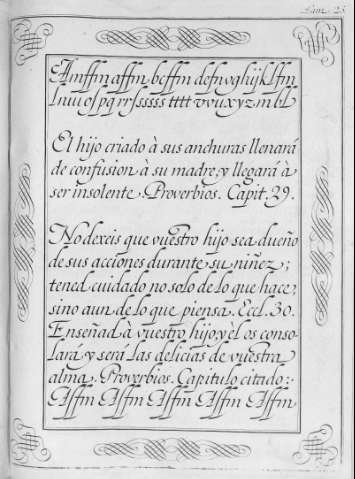 Lam. 25
Amffm affm bcffm defnvghijklffm
lnuu ofpq rrsssss tttt vvuxyz m bl
El hijo criado à sus anchuras llenará
de confusion à su madre, y llegará à
ser insolente. Proverbios. Capit. 29.
No dexeis que vuestro hijo sea dueño
de sus acciones durante su niñez;
tened cuidado no solo de lo que hace;
sino aun de lo que piensa. Eccl. 30.
Enseñad à vuestro hijo, y èl os conso
lará, y será las delicias de vuestra
alma. Proverbios. Capitulo citado:
Affm Affm Affm Affm Affm